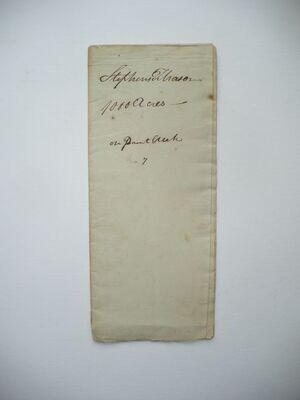 Stephens T Mason
1000 Acres
on Paint Creek
7